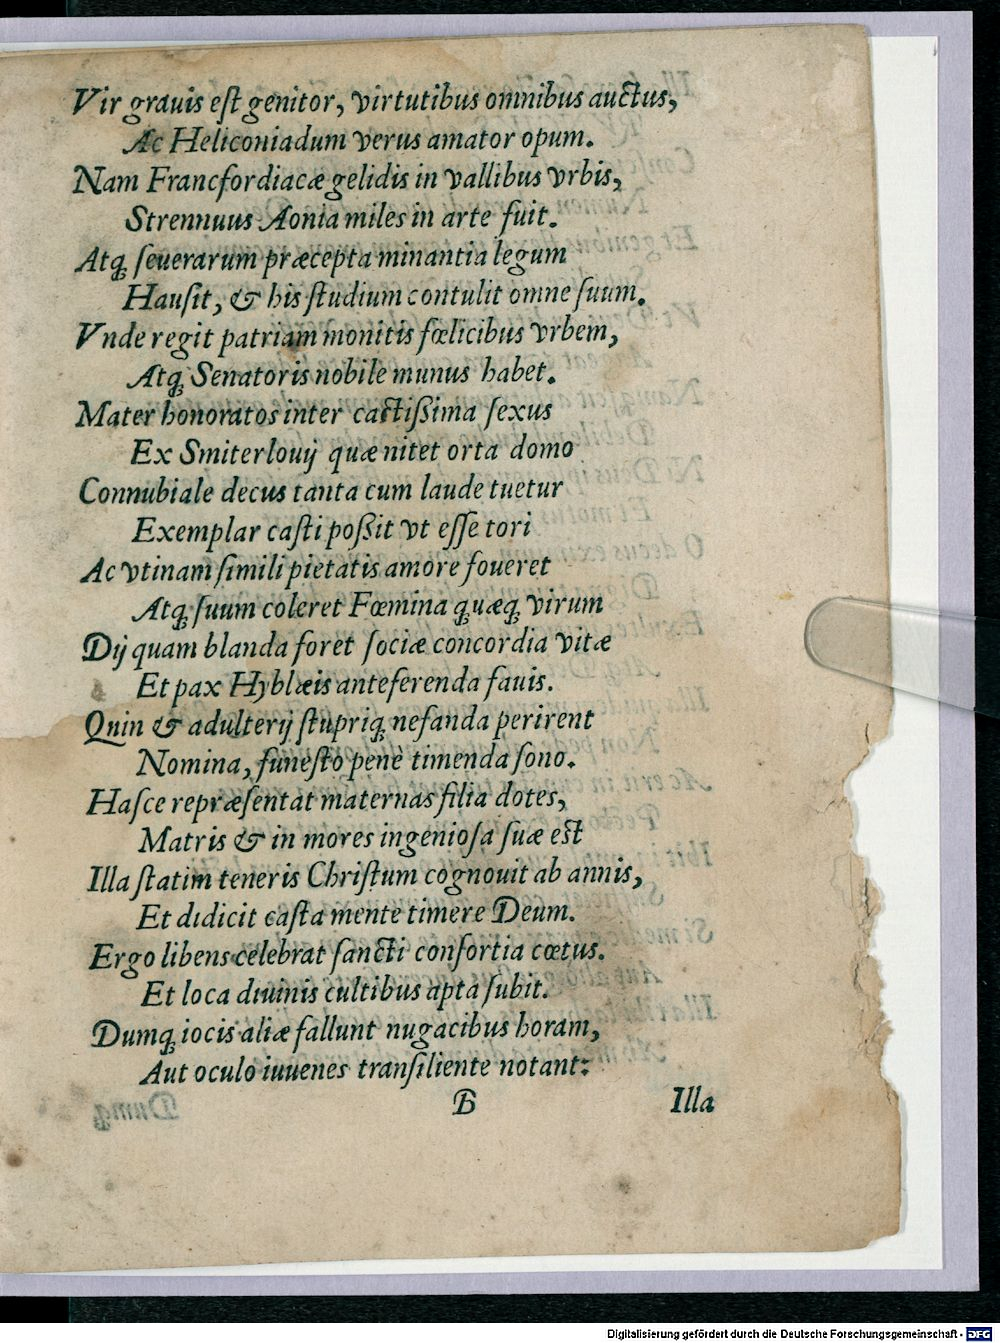 Vir grauis eſt genitor, virtutibus omnibus auctus,
Ac Heliconiadum verus amator opum.
Nam Francfordiacæ gelidis in vallibus vrbis,
Strennuus Aonia miles in arte fuit.
Atq; ſeuerarum præcepta minantia legum
Hauſit, & his ſtudium contulit omne ſuum.
Vnde regit patriam monitis fœlicibus vrbem,
Atq; Senatoris nobile munus habet.
Mater honoratos inter cactißima ſexus
Ex Smiterlouij quæ nitet orta domo
Connubiale decus tanta cum laude tuetur
Exemplar caſti poßit vt eſſe tori
Ac vtinam ſimili pietatis amore foueret
Atq; ſuum coleret Fœmina quæq; virum
Dij quam blanda foret ſociæ concordia vitæ
Et pax Hyblæis anteferenda fauis.
Quin & adulterij ſtupriq; nefanda perirent
Nomina, funeſto penè timenda ſono.
Haſce repræſentat maternas filia dotes,
Matris & in mores ingenioſa ſuæ est
Illa ſtatim teneris Chriſtum cognouit ab annis,
Et didicit caſta mente timere Deum.
Ergo libens celebrat ſancti conſortia cœtus.
Et loca diuinis cultibus apta ſubit.
Dumq; iocis aliæ fallunt nugacibus horam,
Aut oculo iuuenes tranſiliente notant:
B Illa
Digitalisierung gefördert durch die Deutsche Forschungsgemeinschaft - DFG